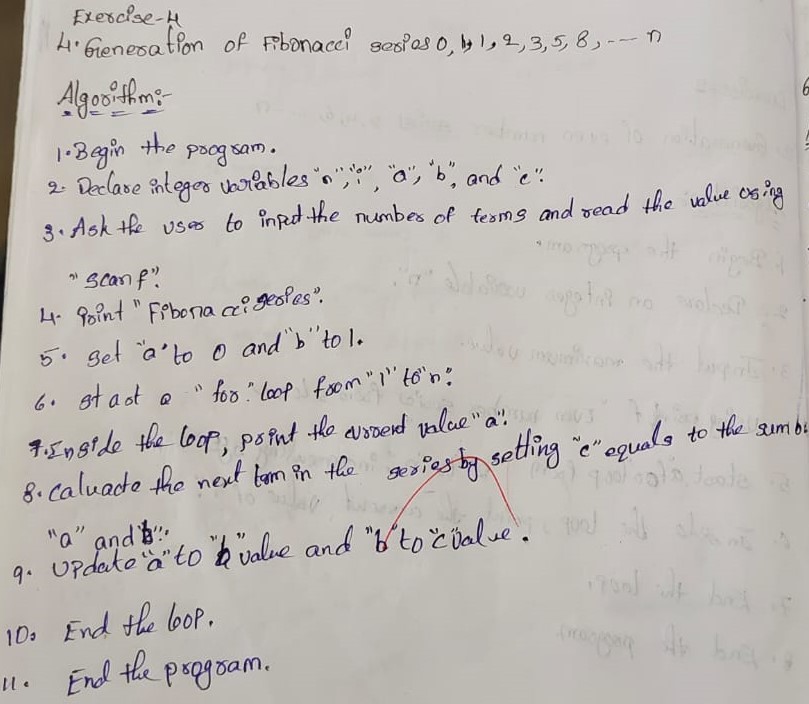 Exercise-4
4. Generation of Fibonacci series 0, 1, 1, 2, 3, 5, 8, --- n
Algorithm:-
1. Begin the program.
2. Declare integer variables "n", "i", "a", "b", and "c".
3. Ask the user to input the number of terms and read the value using
"scanf".
4. Print "Fibonacci series".
5. Set "a" to 0 and "b" to 1.
6. Start a "for" loop from "1" to "n".
7. Inside the loop, print the current value "a".
8. caluacte the next term in the series by setting "c" equals to the sum
"a" and "b".
9. Update "a" to "b" value and "b" to "c" value.
10. End the loop.
11. End the program.